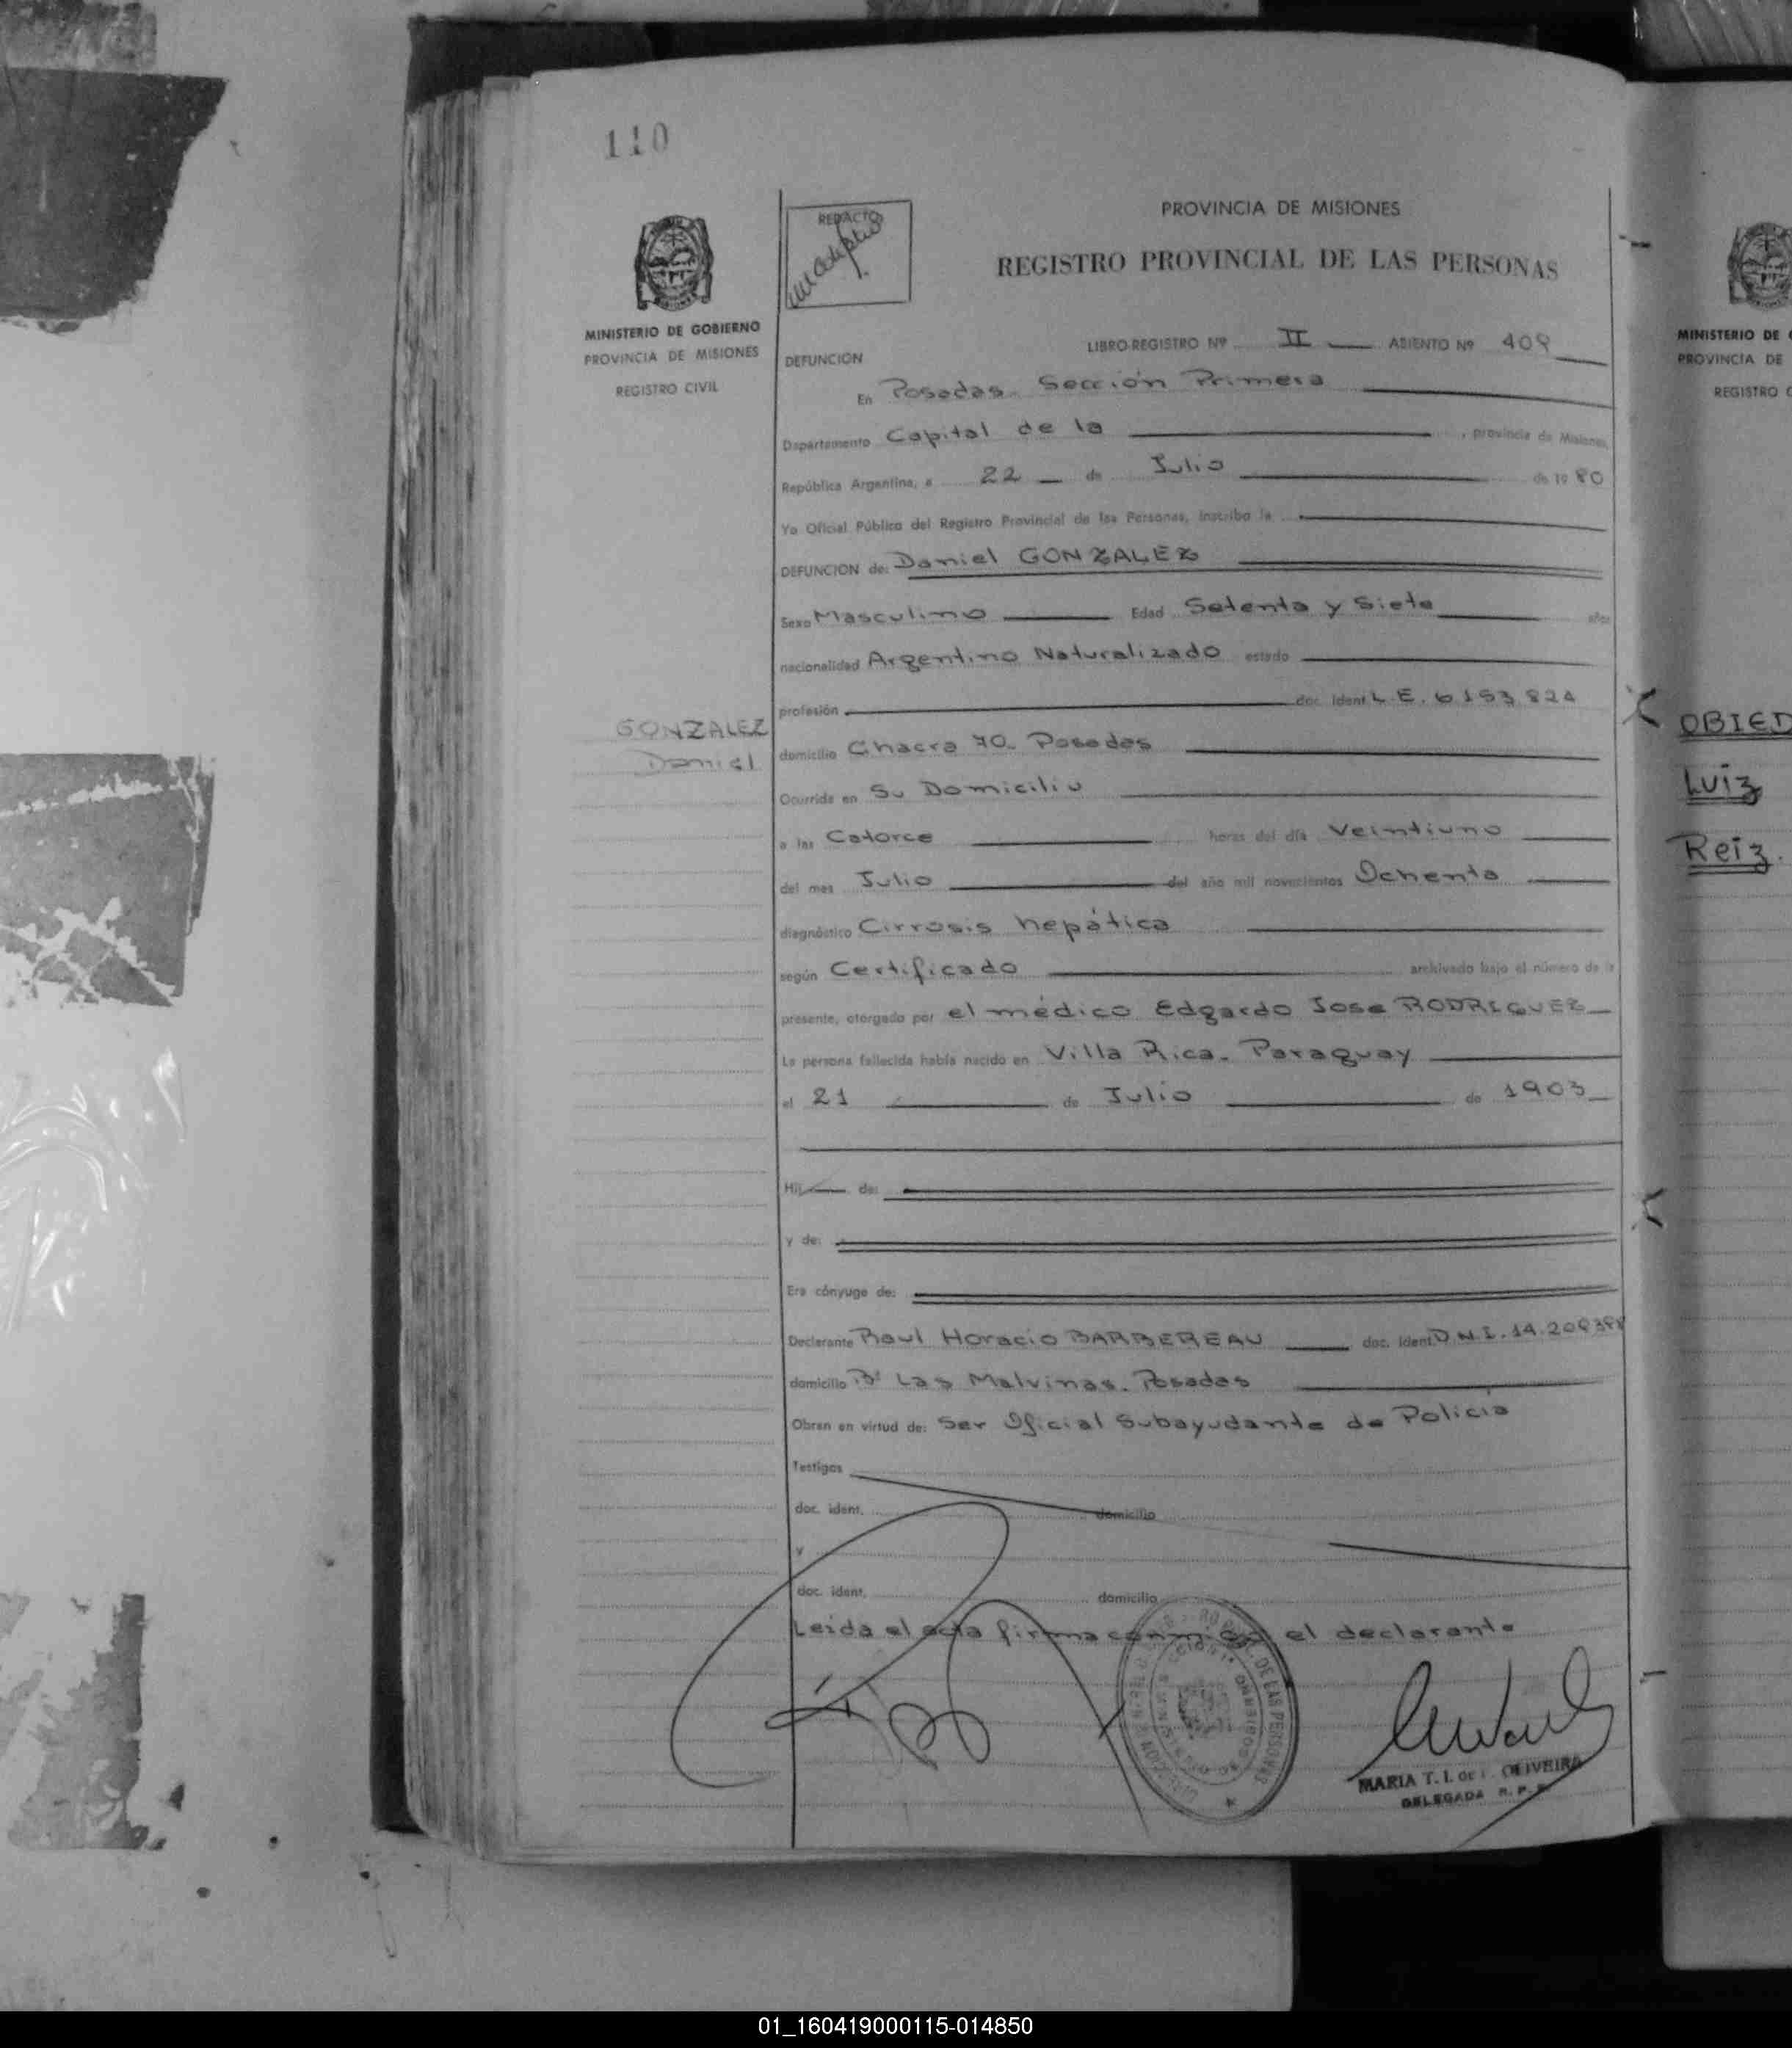 110
MINISTERIO DE GOBIERNO
PROVINCIA DE MISIONES
REGISTRO CIVIL
GONZALEZ
Daniel
REDACTO
PROVINCIA DE MISIONES
REGISTRO PROVINCIAL DE LAS PERSONAS
LIBRO-REGISTRO Nº II ASIENTO Nº 409
DEFUNCION
En Posadas. Sección Primera
Departamento Capital de la , provincia de Misiones,
República Argentina, a 22 de Julio de 19 80
Yo Oficial Público del Registro Provincial de las Personas, inscribo la
DEFUNCION de: Daniel GONZALEZ
Sexo Masculino Edad Setenta y Siete años
nacionalidad Argentino Naturalizado estado
profesión doc. ident. L.E. 6153824
domicilio Chacra 70. Posadas
Ocurrida en Su Domicilio
a las Catorce horas del día Veintiuno
del mes Julio del año mil novecientos Ochenta
diagnóstico Cirrosis hepática
según Certificado archivado bajo el número de la
presente, otorgado por el médico Edgardo Jose RODRIGUEZ
La persona fallecida había nacido en Villa Rica. Paraguay
el 21 de Julio de 1903
Hij de:
y de:
Era cónyuge de:
Declarante Raul Horacio BARBEREAU doc. ident. D.N.I. 14.209398
domicilio Bº Las Malvinas. Posadas
Obran en virtud de: Ser Oficial Subayudante de Policia
Testigos
doc. ident. domicilio
y
doc. ident. domicilio
Leida el acta firma conmigo el declarante
DE LAS PERSONAS
MARIA T. I. de OLIVEIRA
DELEGADA R. P. P.
MINISTERIO DE
PROVINCIA DE
REGISTRO
OBIED
Luiz
Reiz.
01_160419000115-014850